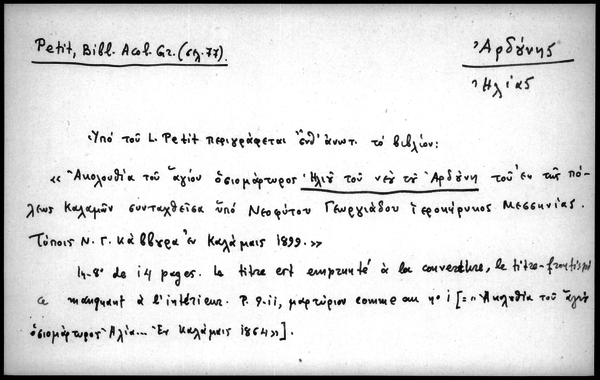 Petit, Bibl. Acol. Gr. (σελ. 77).
Ἀρδούνης
Ἠλίας
Ὑπό τοῦ L. Petit περιγράφεται ἔνθ' ἀνωτ. τό βιβλίον:
«Ἀκολουθία τοῦ ἁγίου ὁσιομάρτυρος Ἠλιοῦ τοῦ νέου τοῦ Ἀρδούνη τοῦ ἐν τῆς πό-
λεως Καλαμῶν συνταχθεῖσα ὑπό Νεοφύτου Γεωργιάδου ἱεροκήρυκος Μεσσηνίας.
Τύποις Ν. Γ. Κάββουρα ἐν Καλάμαις 1899.»
In-8° de 14 pages. Le titre est emprunté à la couverture, le titre-frontispi
ce manquant à l'intérieur. P. 9-11, μαρτύριον comme au n° 1 [= «Ἀκολουθία τοῦ ἁγίου
ὁσιομάρτυρος Ἠλία... Ἐν Καλάμαις 1864»].